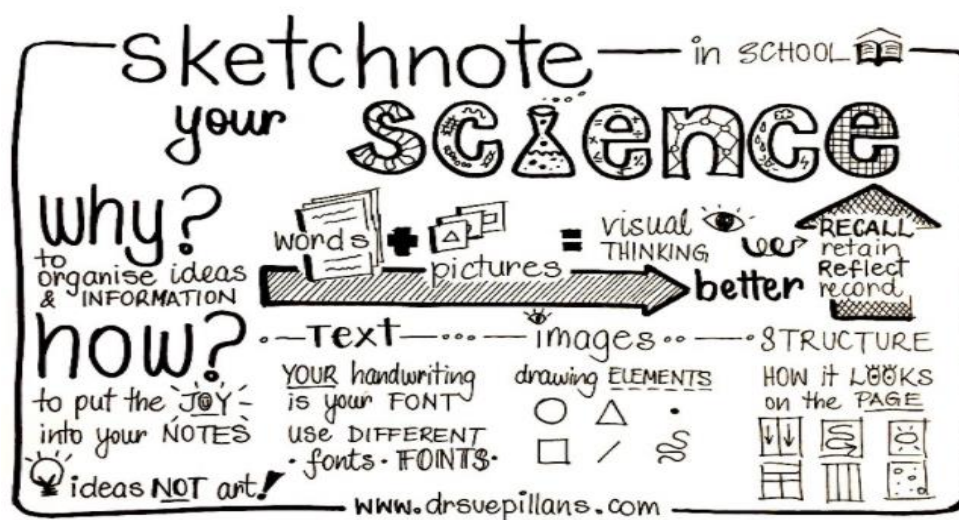 sketchnote in SCHOOL
your science
why?
to
organise ideas
& INFORMATION
words + pictures = visual THINKING
better
RECALL
retain
Reflect
record
how?
to put the JOY
into your NOTES
ideas NOT art!
TEXT
YOUR handwriting
is your FONT
use DIFFERENT
fonts FONTS
images
drawing ELEMENTS
STRUCTURE
HOW it LOOKS
on the PAGE
www.drsuepillans.com